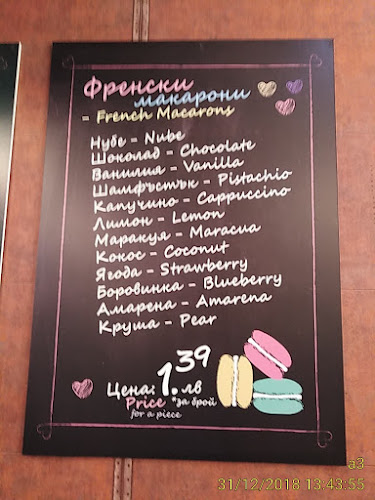 Френски
макарони
= French Macarons
Нубе - Nube
Шоколад - Chocolate
Ванилия - Vanilla
Шамфъстък - Pistachio
Капучино - Cappuccino
Лимон - Lemon
Маракуя - Maracua
Кокос - Coconut
Ягода - Strawberry
Боровинка - Blueberry
Амарена - Amarena
Круша - Pear
Цена: 1.39 лв
Price *за брой
for a piece
a3
31/12/2018 13:43:55